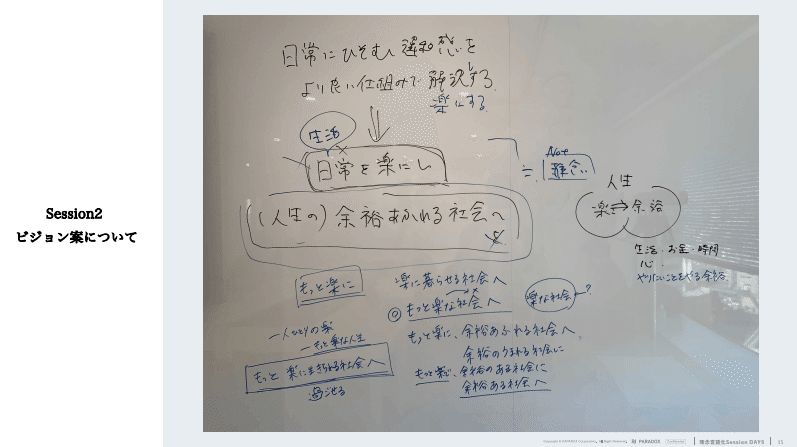 Session2
ビジョン案について
日常にひそむ違和感を
より良い仕組みで解決する。
楽にする。
生活
日常を楽にし
(人生の)余裕あふれる社会へ
Not
≒ 雑念
人生
楽⇄余裕
生活・お金・時間
心・
やりたいことをやる余裕
もっと楽に
楽に暮らせる社会へ
◎もっと楽な社会へ
楽な社会 ?
一人ひとりの楽
もっと楽な人生
もっと楽に生きられる社会へ
過ごせる
もっと楽に、余裕あふれる社会へ。
余裕のうまれる社会に
もっと楽に、余裕のある社会に
余裕ある社会へ
PARADOX
理念言語化Session DAY5
11